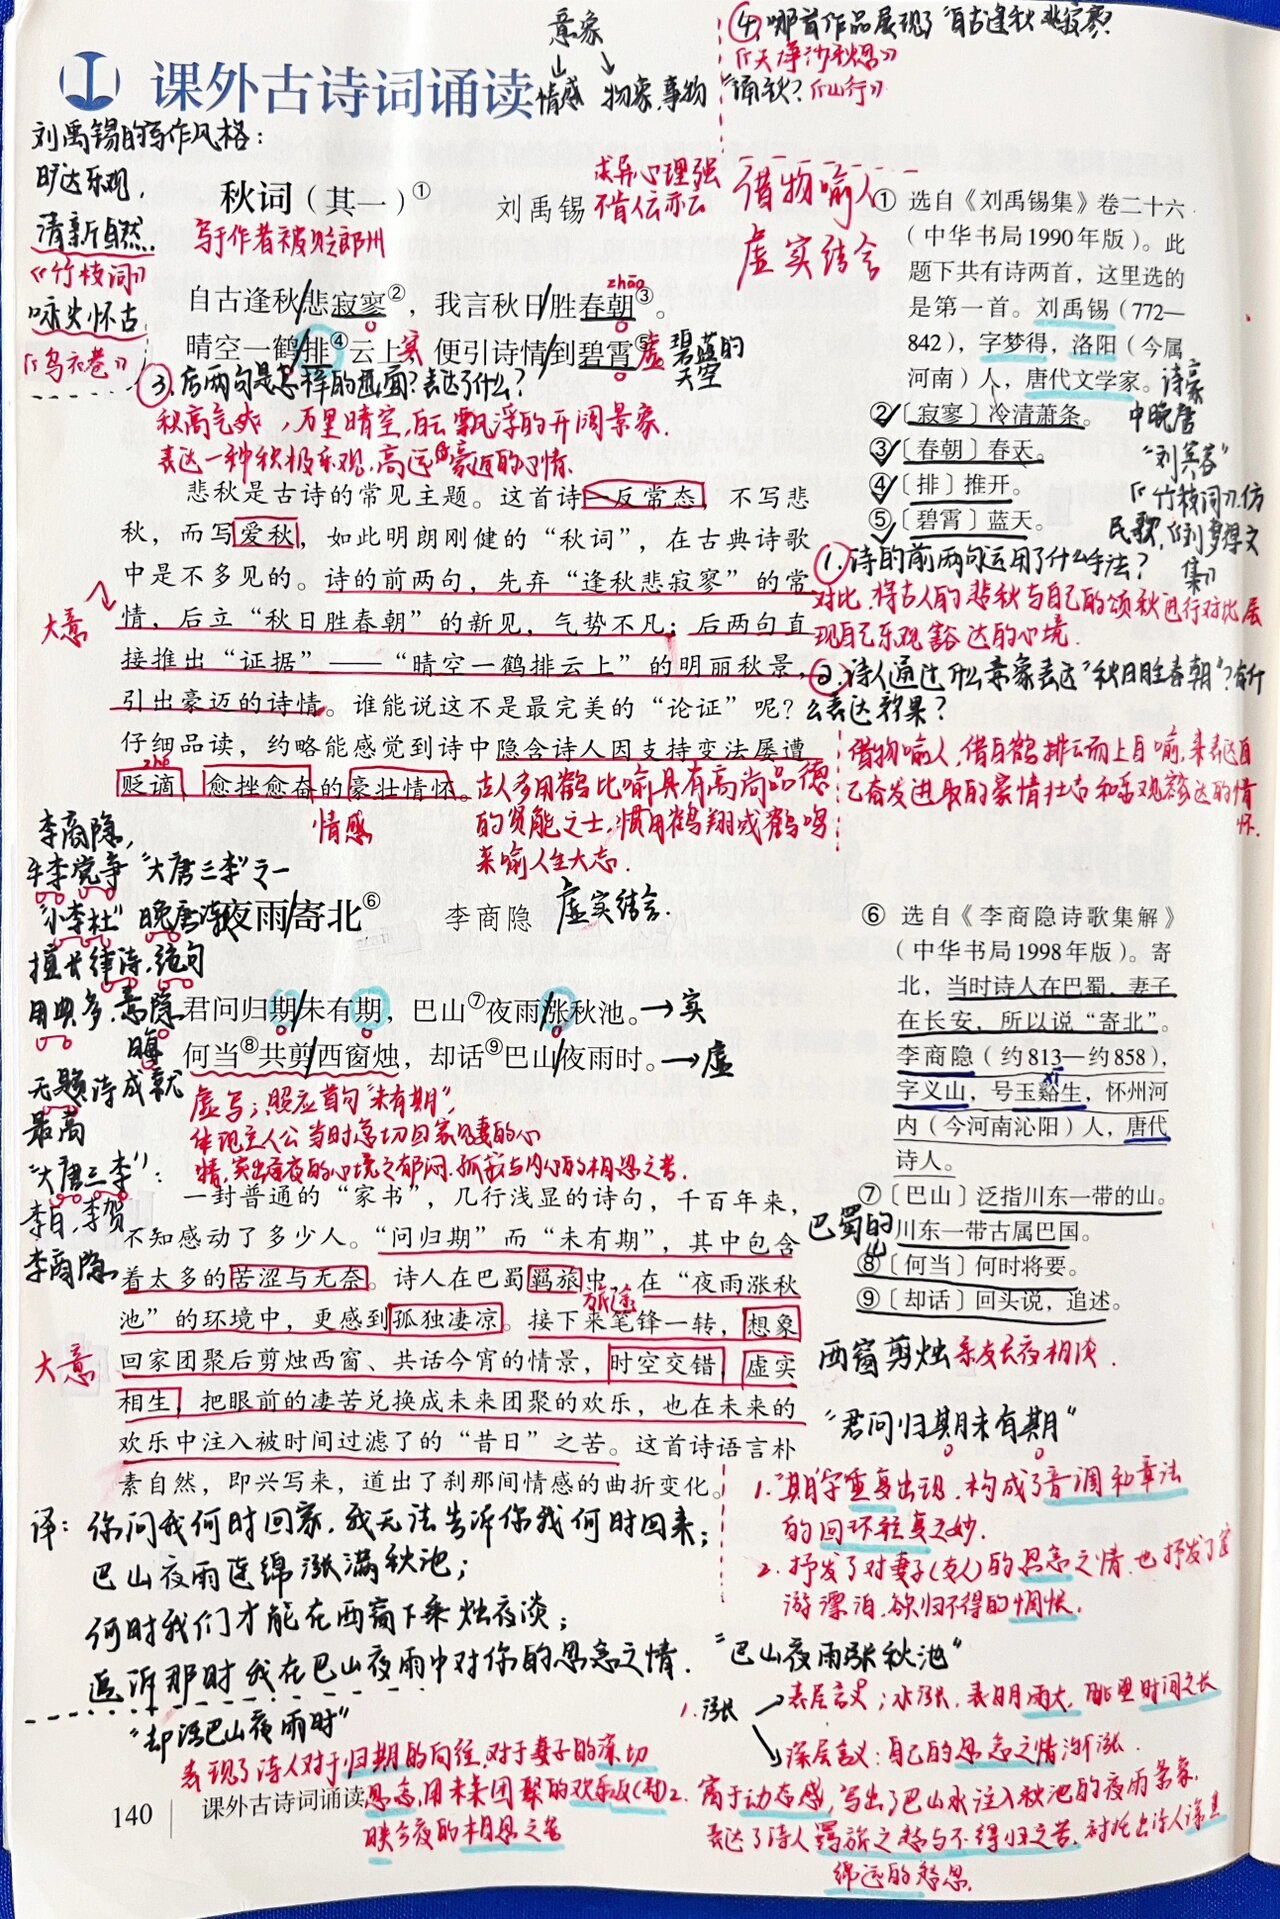 意象
情感 物象、事物
④.哪首作品展现了"自古逢秋悲寂寥"
《天净沙秋思》
诵秋?《山行》
课外古诗词诵读
刘禹锡的写作风格:
旷达乐观,
清新自然.
《竹枝词》
咏史怀古
《乌衣巷》
秋词(其一)①
刘禹锡
求异心理强
不肯人云亦云
借物喻人
虚实结合
写于作者被贬郎州
zhāo
自古逢秋/悲寂寥②,我言秋日/胜春朝③。
晴空一鹤/排④云上,实 便引诗情/到碧霄⑤。虚 碧蓝的
天空
③.后两句是怎样的画面?表达了什么?
秋高气爽,万里晴空,白云飘浮的开阔景象.
表达一种积极乐观、高远豪迈的心情.
悲秋是古诗的常见主题。这首诗一反常态,不写悲
秋,而写爱秋,如此明朗刚健的“秋词”,在古典诗歌
中是不多见的。诗的前两句,先弃“逢秋悲寂寥”的常
情,后立“秋日胜春朝”的新见,气势不凡;后两句直
接推出“证据”——“晴空一鹤排云上”的明丽秋景,
引出豪迈的诗情。谁能说这不是最完美的“论证”呢?
仔细品读,约略能感觉到诗中隐含诗人因支持变法屡遭
贬谪、愈挫愈奋的豪壮情怀。
大意
zhé
情感
古人多用鹤比喻具有高尚品德
的贤能之士,惯用鹤翔或鹤鸣
来喻人生大志.
① 选自《刘禹锡集》卷二十六
(中华书局1990年版)。此
题下共有诗两首,这里选的
是第一首。刘禹锡(772—
842),字梦得,洛阳(今属
河南)人,唐代文学家。诗豪
中晚唐
②〔寂寥〕冷清萧条。
③〔春朝〕春天。
④〔排〕推开。
⑤〔碧霄〕蓝天。
"刘宾客"
《竹枝词》仿
民歌,《刘梦得文
集》
1.诗的前两句运用了什么手法?
对比.将古人的悲秋与自己的颂秋进行对比,展
现自己乐观豁达的心境.
2.诗人通过什么意象表达"秋日胜春朝"?有什
么表达效果?
借物喻人,借白鹤排云而上自喻,来表达自
己奋发进取的豪情壮志和乐观豁达的情
怀.
李商隐,
牛李党争 "大唐三李"之一
"小李杜" 晚唐诗人
擅长律诗、绝句
用典多,意隐
晦
无题诗成就
最高
"大唐三李":
李白,李贺
李商隐
夜雨/寄北⑥
李商隐
虚实结合.
君问归期/未有期,巴山⑦夜雨/涨秋池。→实
何当⑧共剪/西窗烛,却话⑨巴山/夜雨时。→虚
虚写;照应首句"未有期",
体现主人公当时急切回家见妻的心
情,突出雨夜的心境之郁闷、孤寂与内心的相思之苦.
一封普通的“家书”,几行浅显的诗句,千百年来,
不知感动了多少人。“问归期”而“未有期”,其中包含
着太多的苦涩与无奈。诗人在巴蜀羁旅中,在“夜雨涨秋
旅途
池”的环境中,更感到孤独凄凉。接下来笔锋一转,想象
回家团聚后剪烛西窗、共话今宵的情景,时空交错,虚实
相生,把眼前的凄苦兑换成未来团聚的欢乐,也在未来的
欢乐中注入被时间过滤了的“昔日”之苦。这首诗语言朴
素自然,即兴写来,道出了刹那间情感的曲折变化。
大意
⑥ 选自《李商隐诗歌集解》
(中华书局1998年版)。寄
北,当时诗人在巴蜀,妻子
在长安,所以说“寄北”。
李商隐(约813—约858),
xī
字义山,号玉谿生,怀州河
内(今河南沁阳)人,唐代
诗人。
⑦〔巴山〕泛指川东一带的山。
川东一带古属巴国。
巴蜀的山
⑧〔何当〕何时将要。
⑨〔却话〕回头说,追述。
西窗剪烛 亲友长夜相谈.
"君问归期未有期"
1."期"字重复出现,构成了音调和章法
的回环往复之妙.
2.抒发了对妻子(友人)的思念之情,也抒发了宦
游漂泊、欲归不得的惆怅.
译:你问我何时回家,我无法告诉你我何时回来;
巴山夜雨连绵涨满秋池;
何时我们才能在西窗下秉烛夜谈;
追诉那时我在巴山夜雨中对你的思念之情.
"巴山夜雨涨秋池"
1.涨 表层含义;水涨,表明雨大,时间之长
深层含义:自己的思念之情渐涨.
2.富于动态感,写出了巴山水注入秋池的夜雨景象,
表达了诗人羁旅之愁与不得归之苦,衬托出诗人
绵远的愁思.
"却话巴山夜雨时"
表现了诗人对于归期的向往,对于妻子的深切
思念,用未来团聚的欢乐反(衬)
映今夜的相思之苦
140 课外古诗词诵读